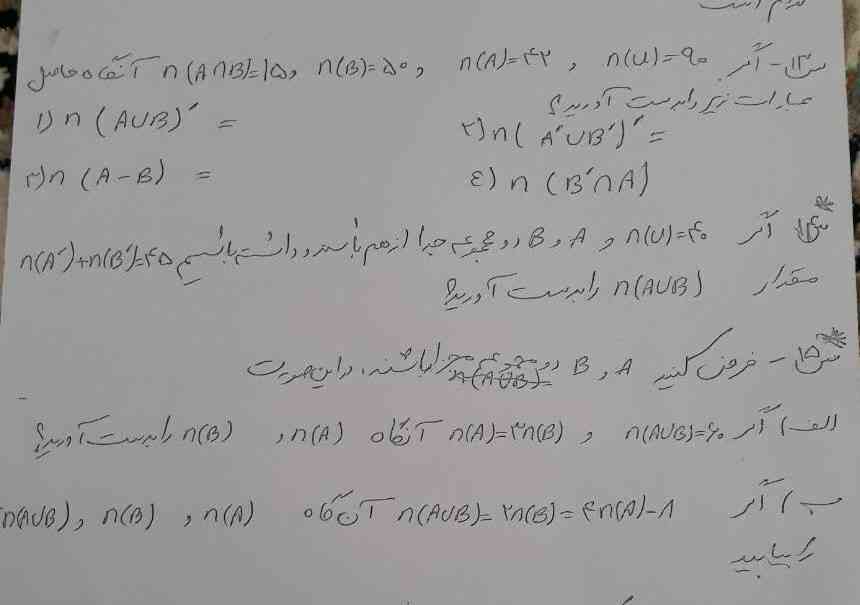 لازم است
س۱۳- اگر n(U)=۹۰ , n(A)=۴۲ , n(B)=۵۰ , n(A∩B)=۱۵ آنگاه حاصل
عبارات زیر را بدست آورید؟
۱) n (A∪B)′ = ۲) n( A′∪B′)′ =
۳) n (A-B) = ٤) n (B′∩A)
س۱۴ اگر n(U)=۴۰ و A و B دو مجموعه جدا از هم باشند و داشته باشیم n(A′)+n(B′)=۴۵
مقدار n(A∪B) را بدست آورید؟
س۱۵- فرض کنید A و B دو مجموعه مجزا باشند، در این صورت
الف) اگر n(A∪B)=۶۰ , n(A)=۳n(B) آنگاه n(A) , n(B) را بدست آورید؟
ب) اگر n(A∪B)=۲n(B)=۴n(A)-۸ آن گاه n(A) , n(B) , n(A∪B)
را بیابید